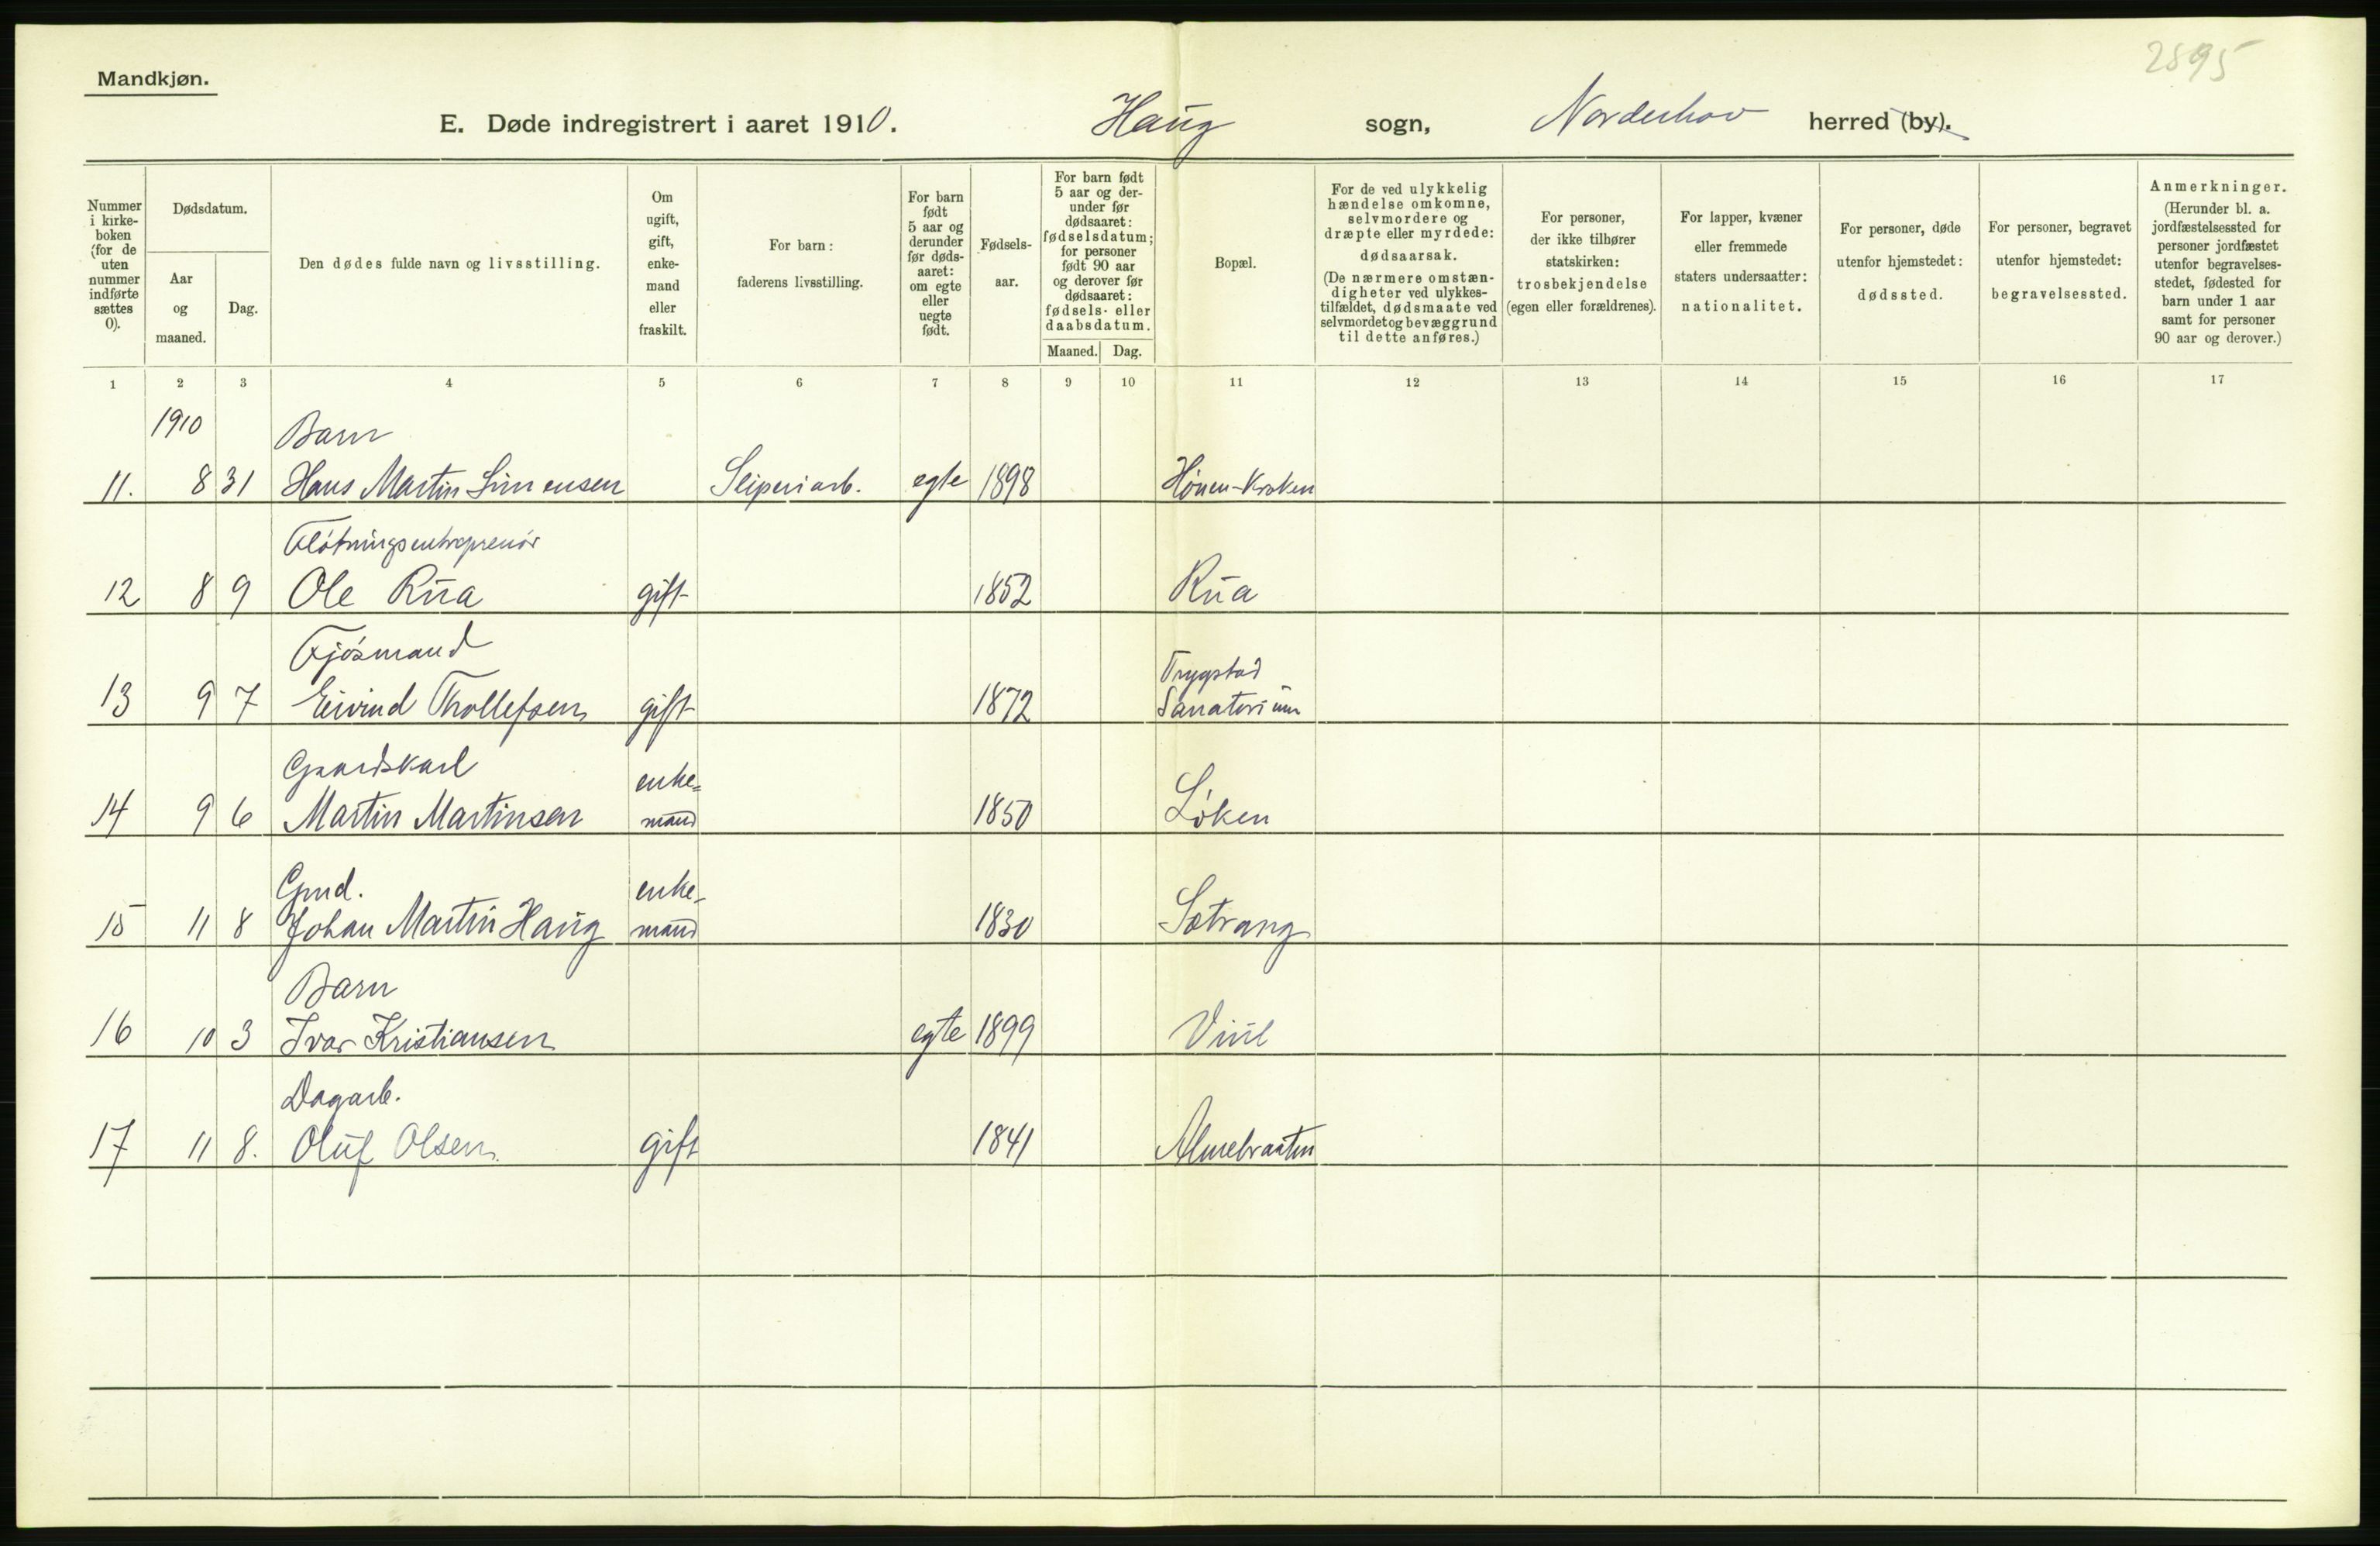 2895
Mandkjøn.
E. Døde indregistrert i aaret 1910. Haug sogn, Norderhov herred (by).
Nummer i kirke-boken (for de uten nummer indførte sættes 0).
Dødsdatum.
Aar og maaned.
Dag.
Den dødes fulde navn og livsstilling.
Om ugift, gift, enke-mand eller fraskilt.
For barn: faderens livsstilling.
For barn født 5 aar og derunder før døds-aaret: om egte eller uegte født.
Fødsels-aar.
For barn født 5 aar og der-under før dødsaaret: fødselsdatum; for personer født 90 aar og derover før dødsaaret: fødsels- eller daabsdatum.
Maaned. Dag.
Bopæl.
For de ved ulykkelig hændelse omkomne, selvmordere og dræpte eller myrdede: dødsaarsak. (De nærmere omstæn-digheter ved ulykkes-tilfældet, dødsmaate ved selvmordet og bevæggrund til dette anføres.)
For personer, der ikke tilhører statskirken: trosbekjendelse (egen eller forældrenes).
For lapper, kvæner eller fremmede staters undersaatter: nationalitet.
For personer, døde utenfor hjemstedet: dødssted.
For personer, begravet utenfor hjemstedet: begravelsessted.
Anmerkninger. (Herunder bl. a. jordfæstelsessted for personer jordfæstet utenfor begravelses-stedet, fødested for barn under 1 aar samt for personer 90 aar og derover.)
1 2 3 4 5 6 7 8 9 10 11 12 13 14 15 16 17
1910 Barn
11. 8 31 Hans Martin Simensen Sliperiarb. egte 1898 Hønen-Kroken
Fløtningsentreprenør
12 8 9 Ole Rua gift 1852 Rua
Fjøsmand Trygstad
13 9 7 Eivind Thollefsen gift 1872 Sanatorium
Gaardskarl enke=
14 9 6 Martin Martinsen mand 1850 Løken
Gmd. enke-
15 11 8 Johan Martin Haug mand 1830 Sætrang
Barn
16 10 3 Ivar Kristiansen egte 1899 Viul
Dagarb.
17 11 8. Oluf Olsen gift 1841 Almebraaten